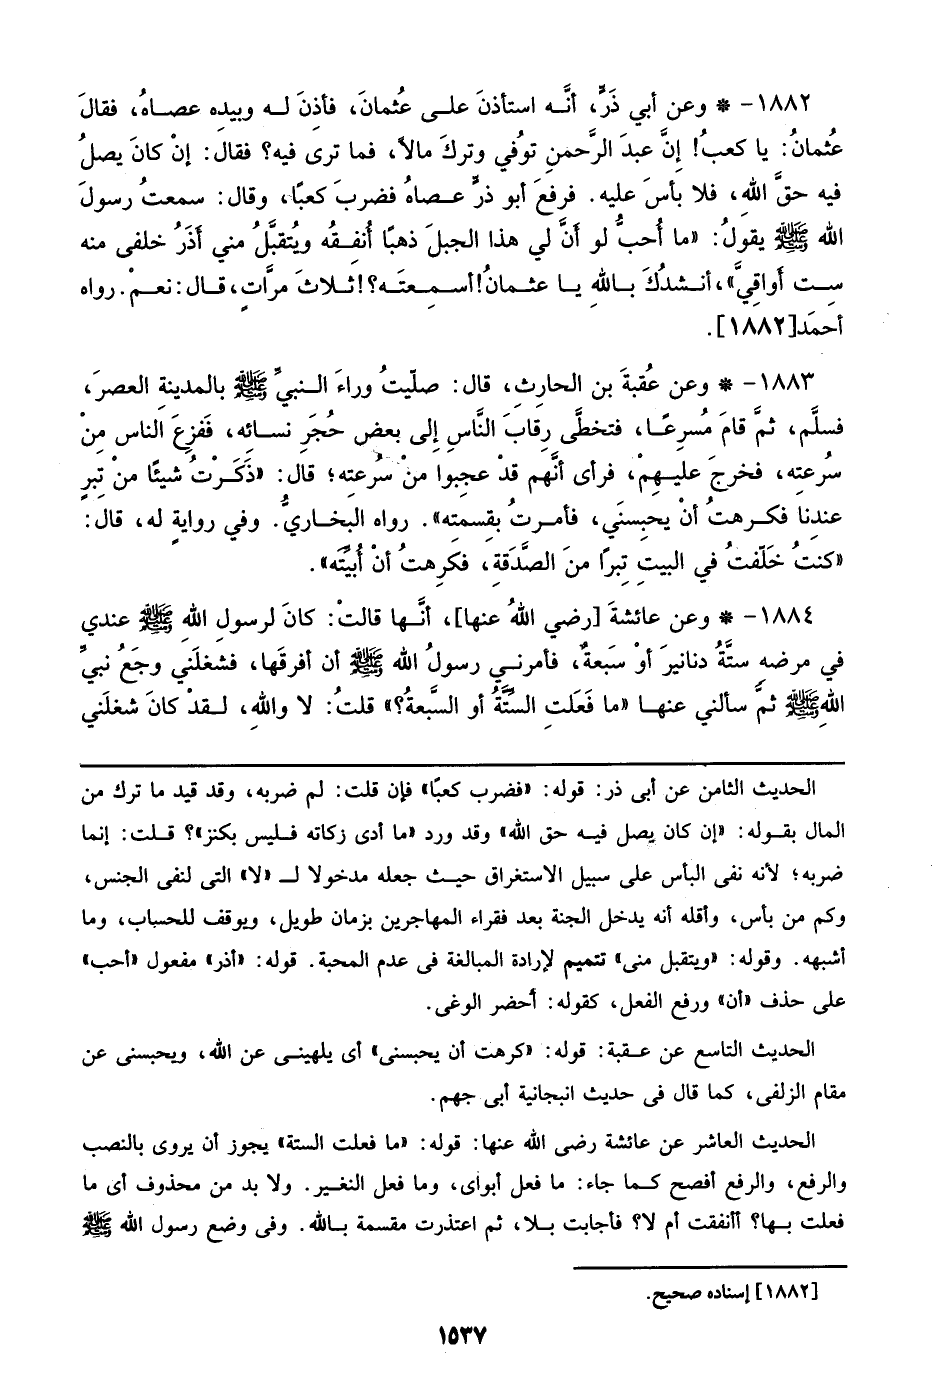 ١٨٨٢- * وعن أبي ذَرٍّ، أنَّه استأذنَ على عُثمانَ، فأذِنَ له وبيده عصاهُ، فقالَ
عُثمانُ: يا كعبُ! إنَّ عبدَ الرَّحمنِ توُفي وتركَ مالاً، فما ترى فيه؟ فقال: إنْ كانَ يصلُ
فيه حقَّ اللهِ، فلا بأسَ عليه. فرفعَ أبو ذرٍّ عصاهُ فضربَ كعبًا، وقال: سمعتُ رسولَ
الله ﷺ يقولُ: «ما أحبُّ لو أنَّ لي هذا الجبلَ ذهبًا أُنفِقُه ويُتقبَّلُ مني أَذَرُ خلفى منه
ست أواقيَّ»، أنشدُكَ باللهِ يا عثمانُ! أسمعتَه؟! ثلاثَ مرَّاتٍ، قال: نعمْ. رواه
أحمدَ[١٨٨٢].
١٨٨٣- * وعن عُقبةَ بن الحارثِ، قال: صلّيتُ وراءَ النبيِّ ﷺ بالمدينةِ العصرَ،
فسلَّم، ثمَّ قامَ مُسرِعًا، فتخطَّى رِقابَ النَّاسِ إلى بعضِ حُجَرِ نسائِه، فَفزِعَ الناس مِنْ
سُرعتِه، فخرجَ عليهِمْ، فرأى أنَّهم قدْ عجِبوا منْ سُرعتِه؛ قال: «ذَكَرْتُ شيئًا منْ تِبرٍ
عندنا فكرهتُ أنْ يحبِسَني، فأمرتُ بِقسمتِه». رواه البخاريُّ. وفي روايةٍ له، قال:
«كنتُ خَلّفتُ في البيتِ تِبرًا منَ الصَّدَقةِ، فكرِهتُ أنْ أُبيِّتَه».
١٨٨٤- * وعن عائشةَ [رضي اللهُ عنها]، أنَّها قالتْ: كانَ لرسولِ اللهِ ﷺ عندي
في مرضهِ ستَّةُ دنانيرَ أوْ سَبعةٌ، فأمرني رسولُ الله ﷺ أن أفرقَها، فشغلَني وجَعُ نبيِّ
اللهِ ﷺ ثمَّ سألني عنها «ما فَعَلَتِ السِّتَّةُ أو السَّبعةُ؟» قلتُ: لا واللهِ، لقدْ كانَ شغلَني
الحديث الثامن عن أبى ذر: قوله: «فضرب كعبًا» فإن قلت: لم ضربه، وقد قيد ما ترك من
المال بقوله: «إن كان يصل فيه حق الله» وقد ورد «ما أدى زكاته فليس بكنز»؟ قلت: إنما
ضربه؛ لأنه نفى البأس على سبيل الاستغراق حيث جعله مدخولا لـ «لا» التى لنفى الجنس،
وكم من بأس، وأقله أنه يدخل الجنة بعد فقراء المهاجرين بزمان طويل، ويوقف للحساب، وما
أشبهه. وقوله: «ويتقبل منى» تتميم لإرادة المبالغة فى عدم المحبة. قوله: «أذر» مفعول «أحب»
على حذف «أن» ورفع الفعل، كقوله: أحضر الوغى.
الحديث التاسع عن عقبة: قوله: «كرهت أن يحبسنى» أى يلهينى عن الله، ويحبسنى عن
مقام الزلفى، كما قال فى حديث انبجانية أبى جهم.
الحديث العاشر عن عائشة رضى الله عنها: قوله: «ما فعلت الستة» يجوز أن يروى بالنصب
والرفع، والرفع أفصح كما جاء: ما فعل أبواى، وما فعل النغير. ولا بد من محذوف أى ما
فعلت بها؟ أأنفقت أم لا؟ فأجابت بلا، ثم اعتذرت مقسمة بالله. وفى وضع رسول الله ﷺ
[١٨٨٢] إسناده صحيح.
١٥٣٧